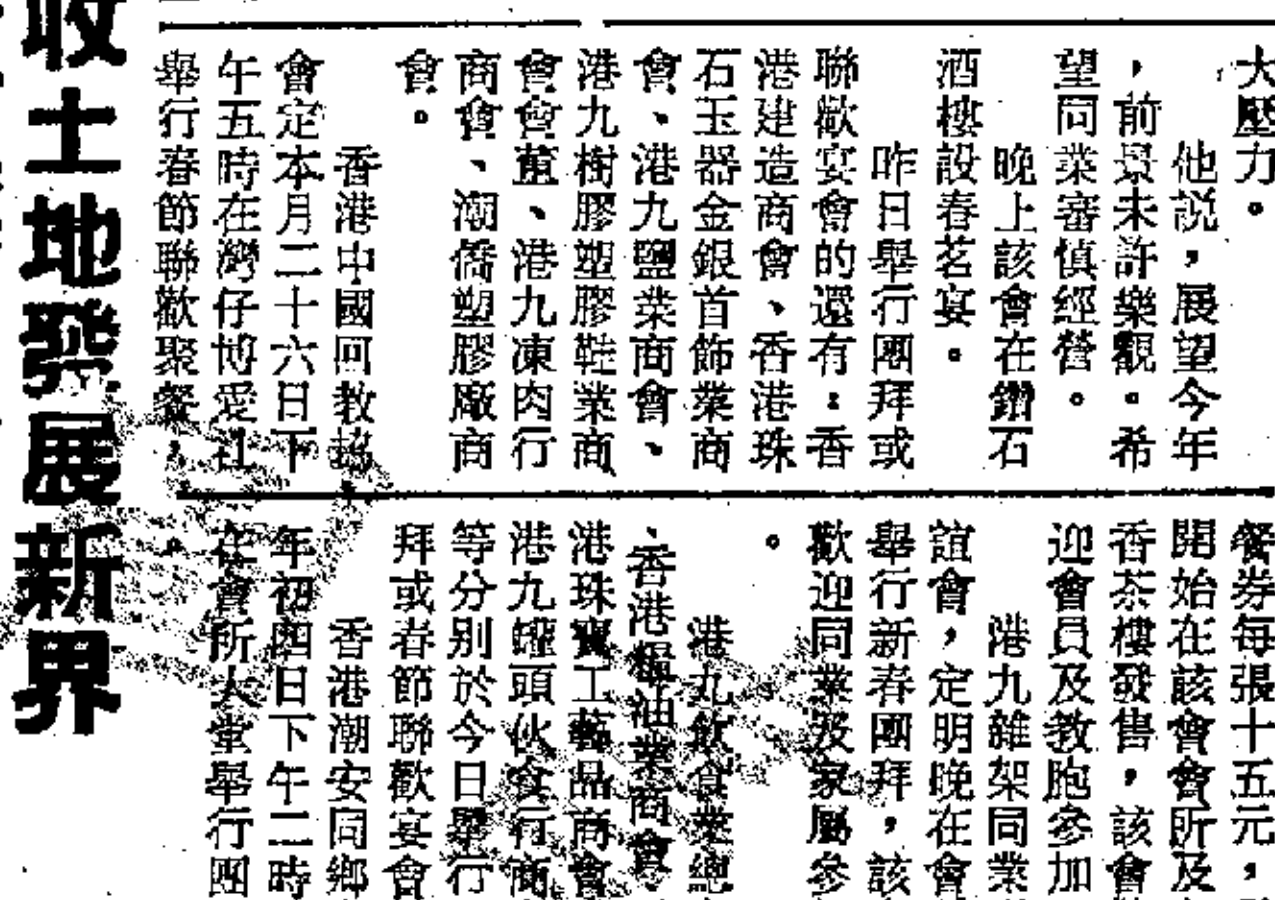 大壓力。
他説，展望今年
，前景未許樂觀。希
望同業審慎經營。
晚上該會在鑽石
酒樓設春茗宴。
昨日舉行團拜或
聯歡宴會的還有：香
港建造商會、香港珠
石玉器金銀首飾業商
會、港九鹽業商會、
港九樹膠塑膠鞋業商
會會董、港九凍肉行
商會、潮僑塑膠廠商
會。
香港中國回教協
會定本月二十六日下
午五時在灣仔博愛社
舉行春節聯歡聚餐，
餐券每張十五元，
開始在該會會所及
香茶樓發售，該會
迎會員及教胞參加
港九雜架同業
誼會，定明晚在會
舉行新春團拜，該
歡迎同業及家屬參
。
港九飲食業總
、香港糧油業商會、
港珠寶工藝品商會
港九罐頭伙食行商
等分別於今日舉行
拜或春節聯歡宴會
香港潮安同鄉
年初四日下午二時
在會所大堂舉行團
。
收土地發展新界